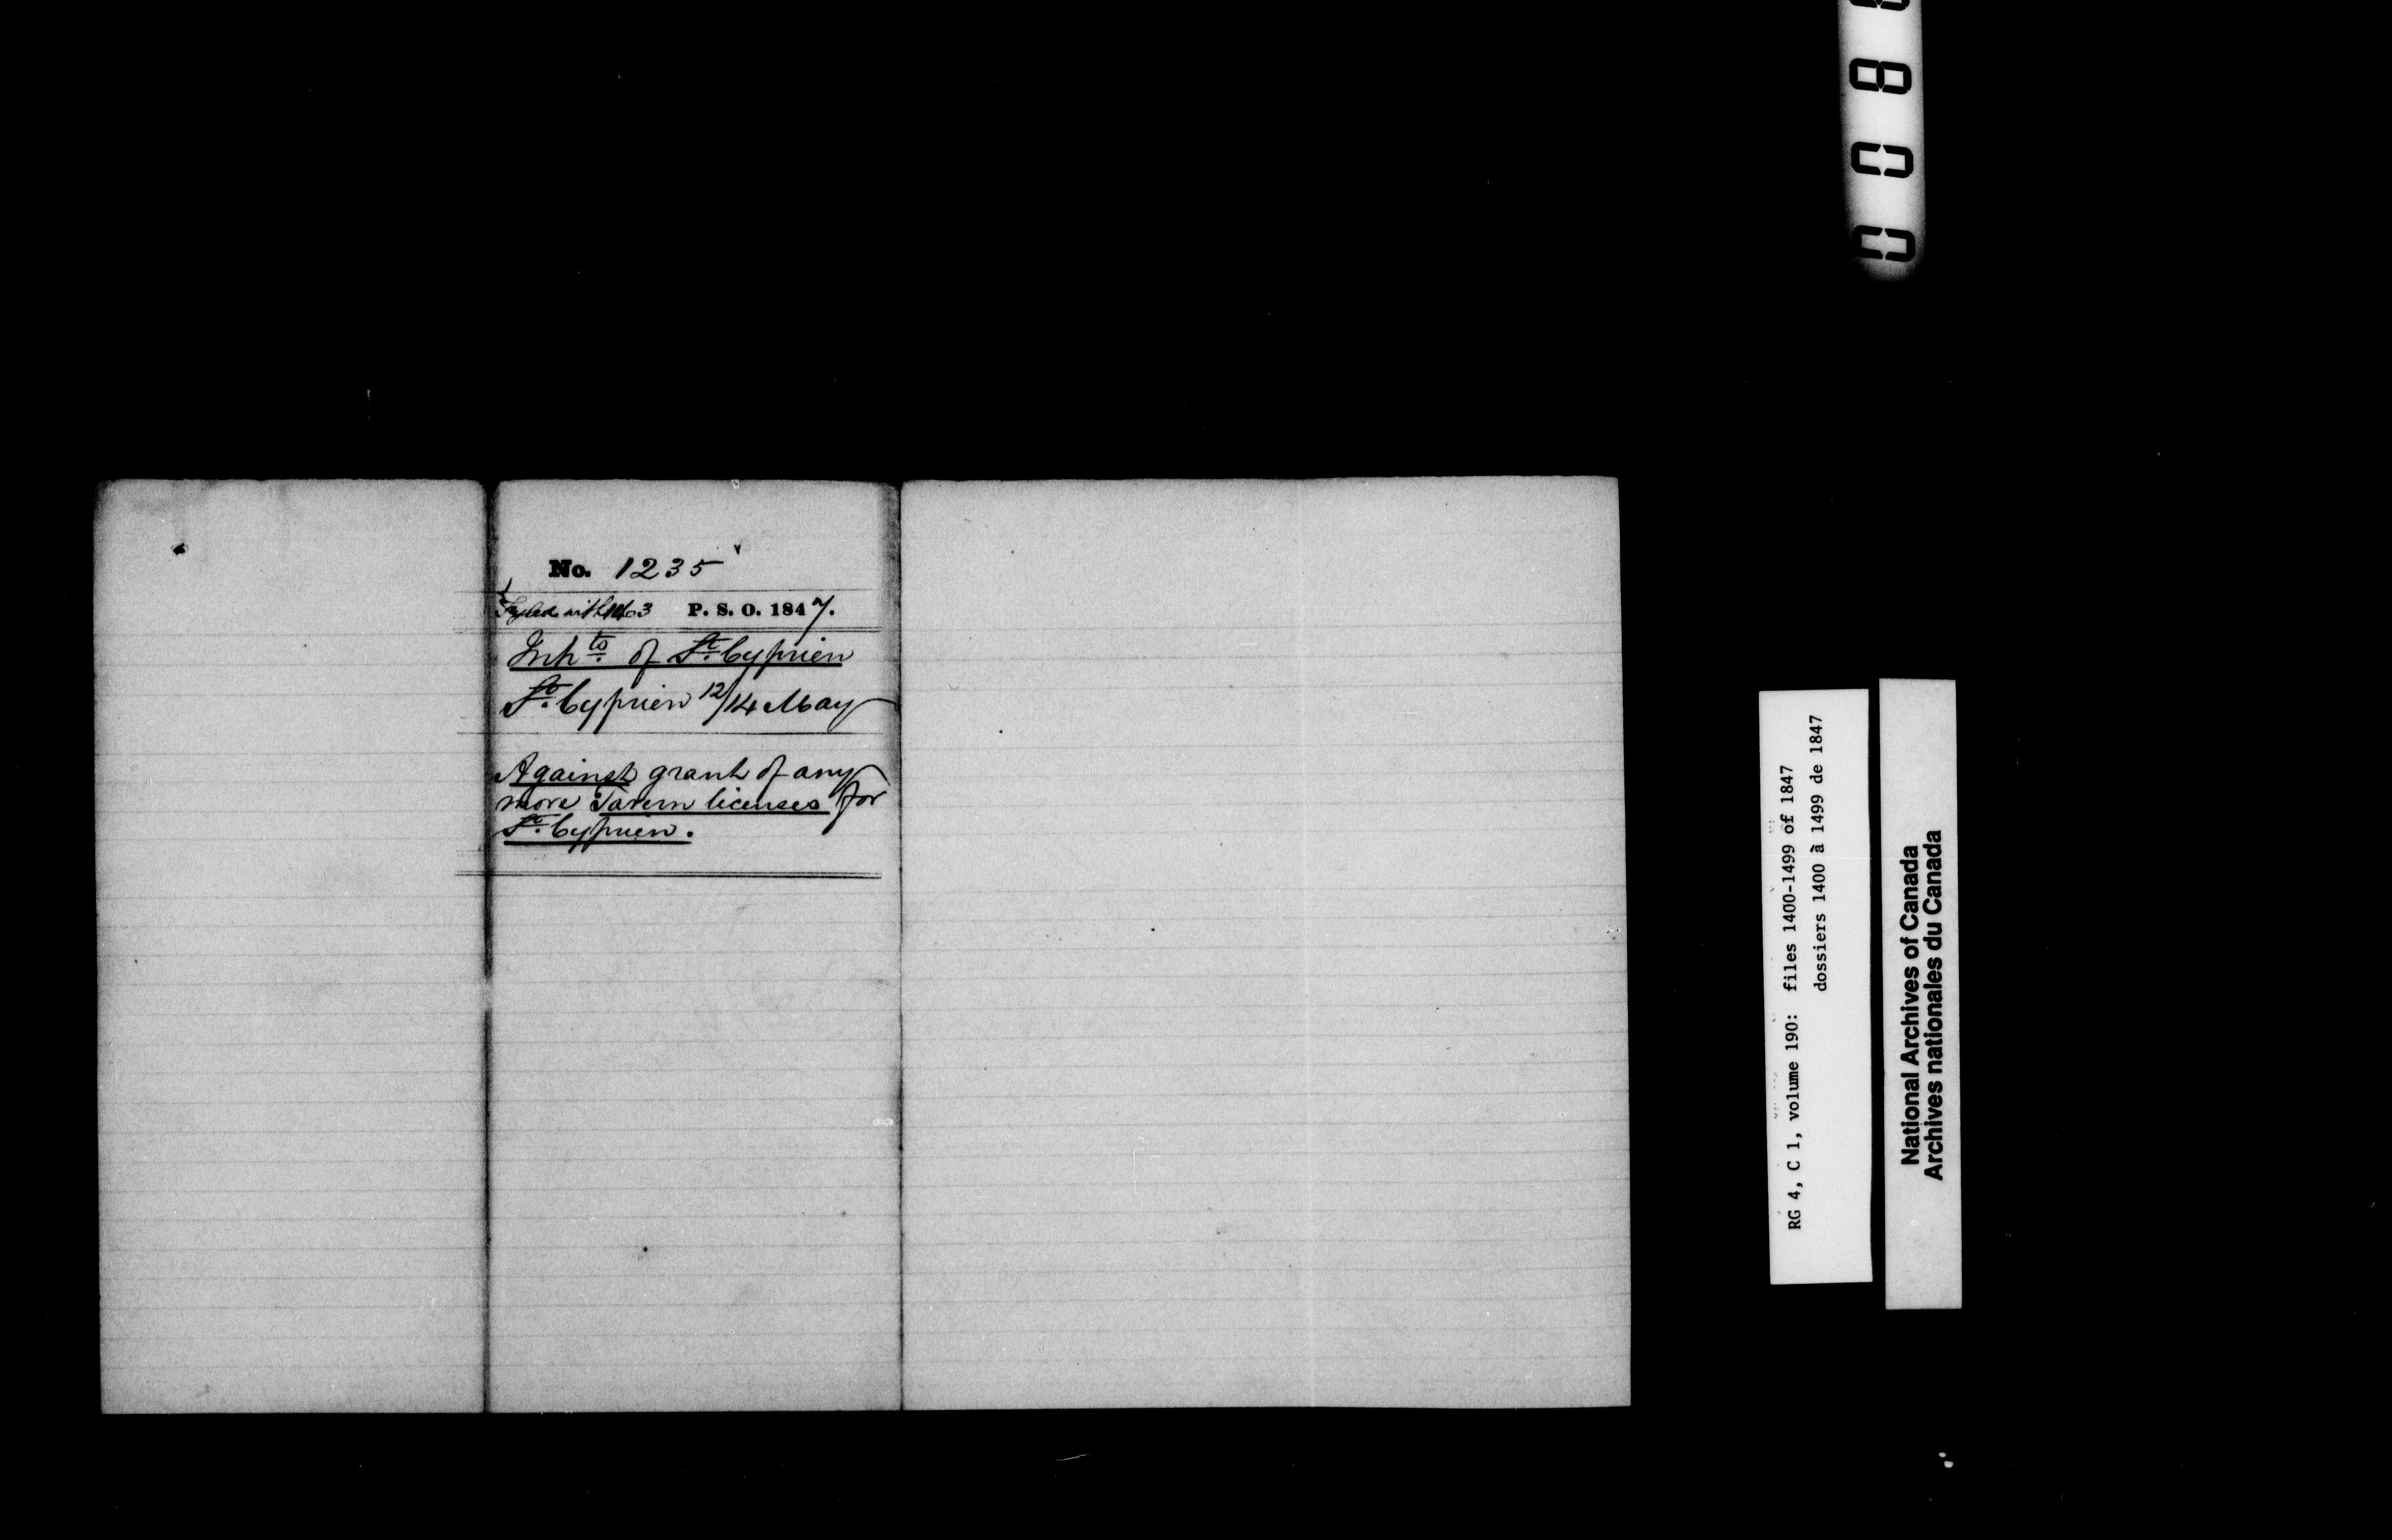 No. 1235
Fyled with 1463 P. S. O. 1847.
Inhts. of St. Cyprien
St. Cyprien 12/14 May
Against grant of any
more Tavern licenses for
St. Cyprien.
RG 4, C 1, volume 190: files 1400-1499 of 1847
dossiers 1400 à 1499 de 1847
National Archives of Canada
Archives nationales du Canada
0 0 8